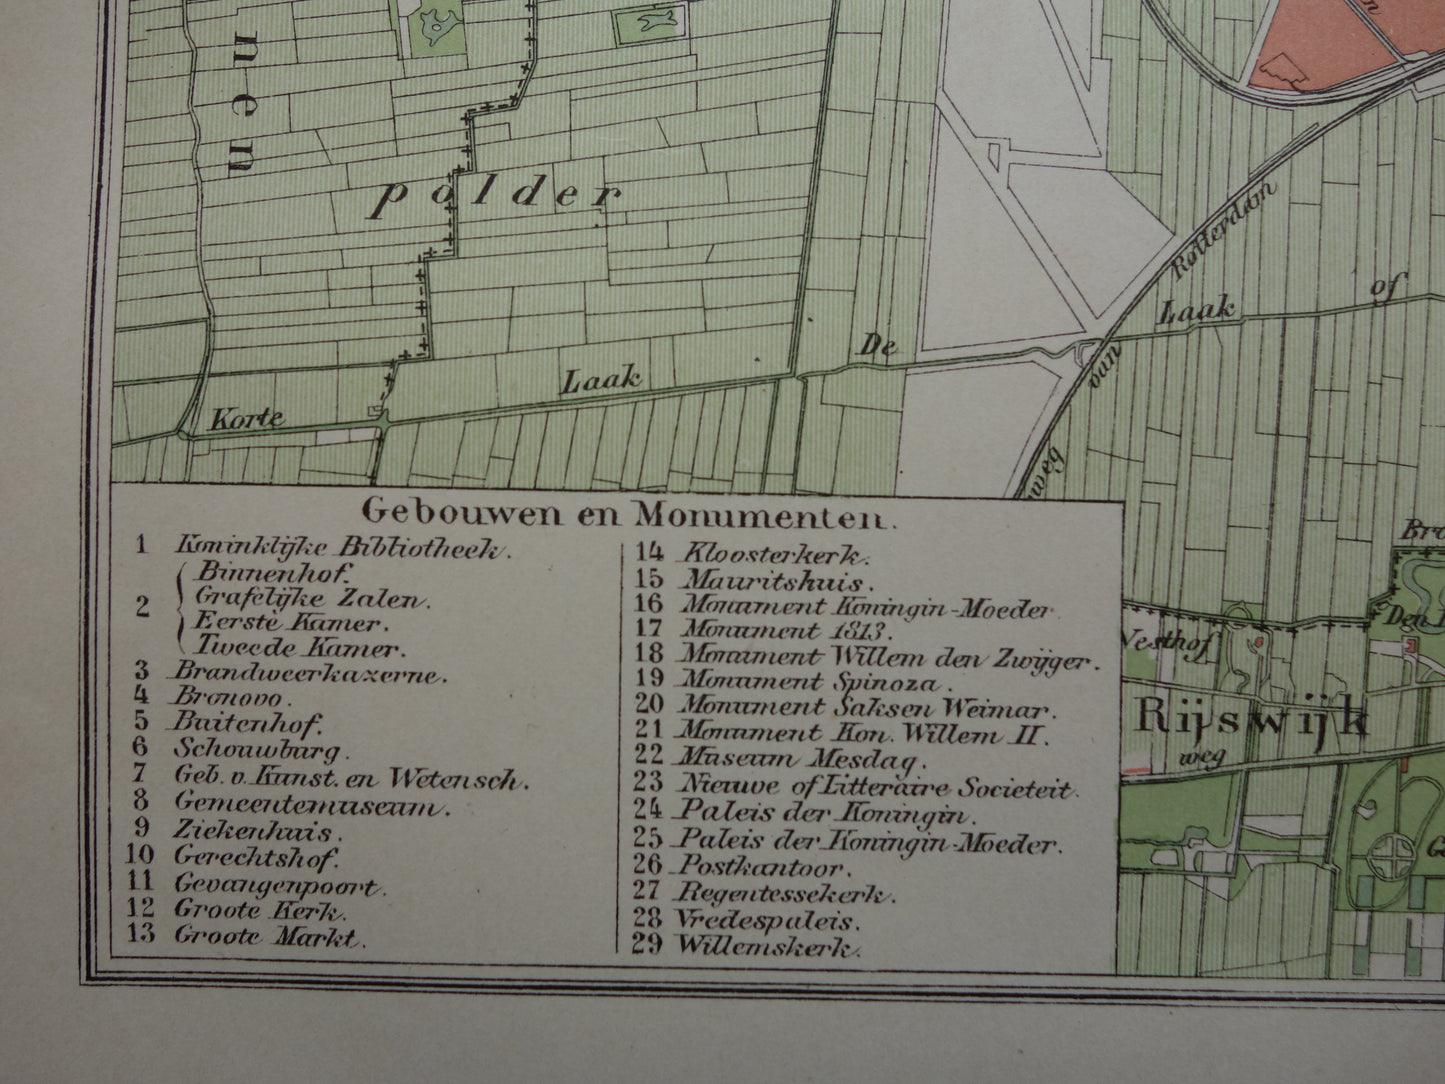 nen
polder
Rotterdam
Laak
of
De
van
Laak
Korte
weg
Gebouwen en Monumenten.
1 Koninklijke Bibliotheek.
2 Binnenhof.
Grafelijke Zalen.
Eerste Kamer.
Tweede Kamer.
3 Brandweerkazerne.
4 Bronovo.
5 Buitenhof.
6 Schouwburg.
7 Geb. v. Kunst. en Wetensch.
8 Gemeentemuseum.
9 Ziekenhuis.
10 Gerechtshof.
11 Gevangenpoort.
12 Groote Kerk.
13 Groote Markt.
14 Kloosterkerk.
15 Mauritshuis.
16 Monument Koningin-Moeder
17 Monument 1813.
18 Monument Willem den Zwijger.
19 Monument Spinoza.
20 Monument Saksen Weimar.
21 Monument Kon. Willem II.
22 Museum Mesdag.
23 Nieuwe of Litteraire Societeit.
24 Paleis der Koningin.
25 Paleis der Koningin-Moeder.
26 Postkantoor.
27 Regentessekerk.
28 Vredespaleis.
29 Willemskerk.
Bro
Den
Vesthof
Rijswijk
weg